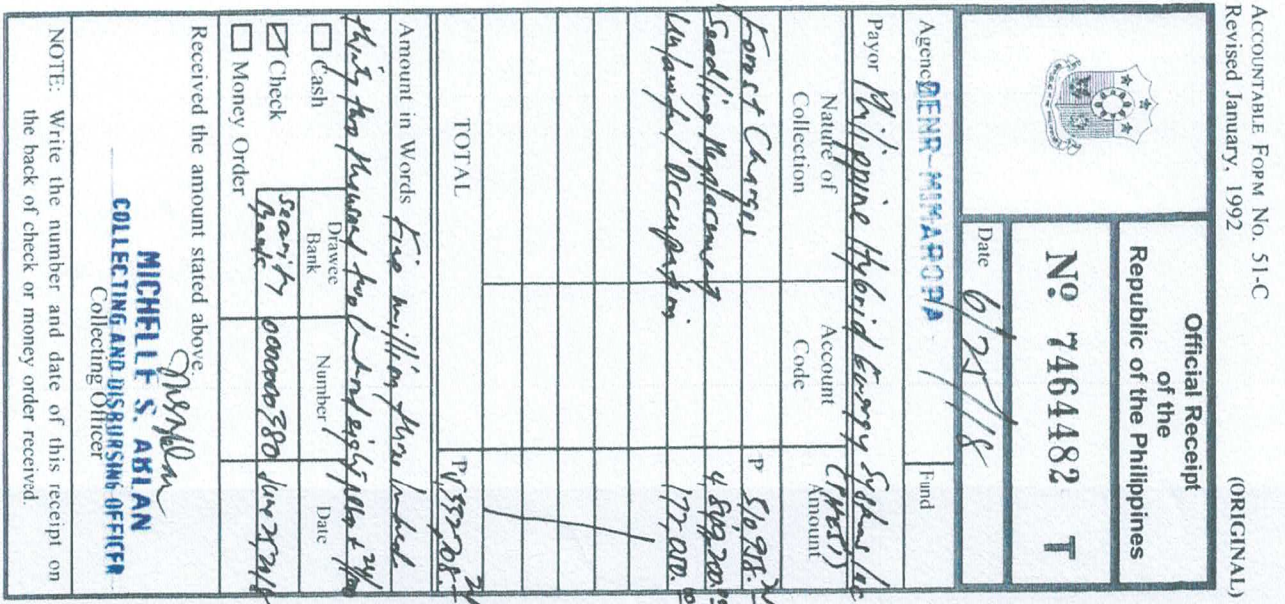 ACCOUNTABLE FORM No. 51-C
Revised January, 1992
(ORIGINAL)
Official Receipt
of the
Republic of the Philippines
No 7464482 T
Date 6/25/18
Agency DENR-MIMAROPA
Fund
Payor Philippine Hybrid Energy Systems Inc
(PHESI)
Nature of Collection Account Code Amount
Forest Charges P
Seedling Replacement
Unlawful Occupation 172,010.00
TOTAL
Amount in Words Five million three hundred
thirty two thousand two hundred eight pesos &
Cash
Check
Money Order
Drawee Bank Number Date
Security Bank 0000000380 June 25 2018
Received the amount stated above.
MICHELLE S. AKLAN
COLLECTING AND DISBURSING OFFICER
Collecting Officer
NOTE: Write the number and date of this receipt on
the back of check or money order received.